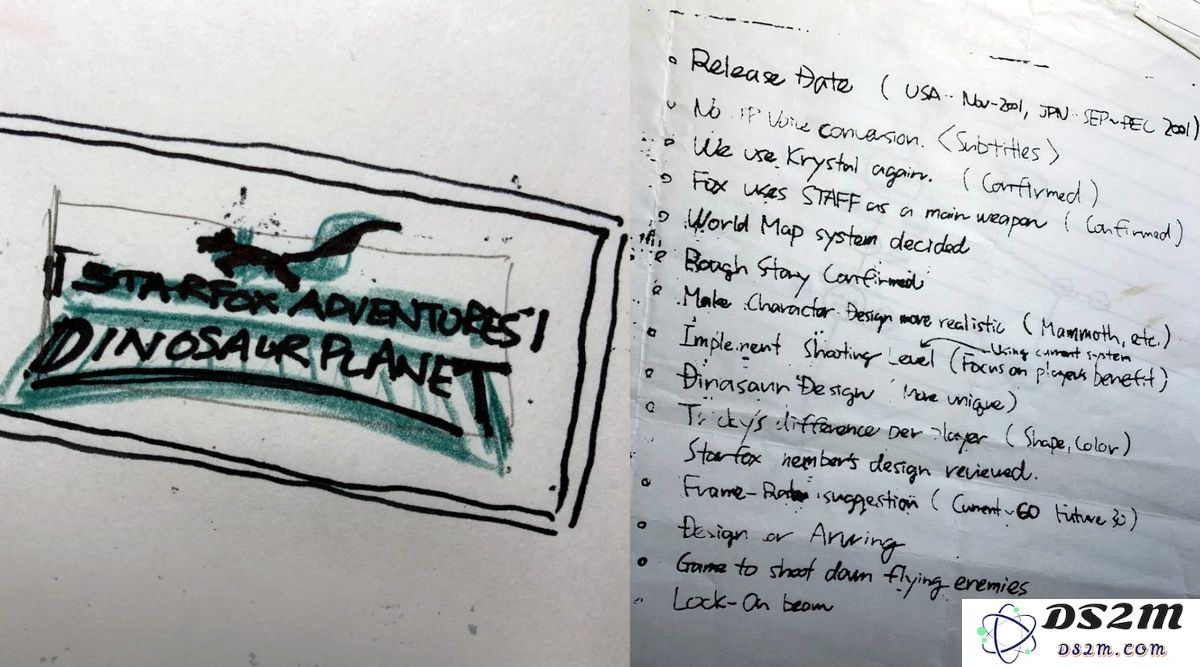 STARFOX ADVENTURES
DINOSAUR PLANET
Release Date ( USA·· Nov-2001, JPN·· SEP~DEC 2001)
No JP Voice conversion. <Subtitles>
We use Krystal again. (Confirmed)
Fox uses STAFF as a main weapon (Confirmed)
World Map system decided
Rough Story Confirmed
Make Character Design more realistic (Mammoth, etc.)
Using current system
Implement Shooting Level (Focus on players benefit)
Dinasaur Design (More unique)
Tricky's difference per player (Shape, Color)
Starfox member's design reviewed.
Frame-Rate suggestion (Current~60 Future 30)
Design or Arwing
Game to shoot down flying enemies
Lock-On beam
DS2M
DS2M.COM